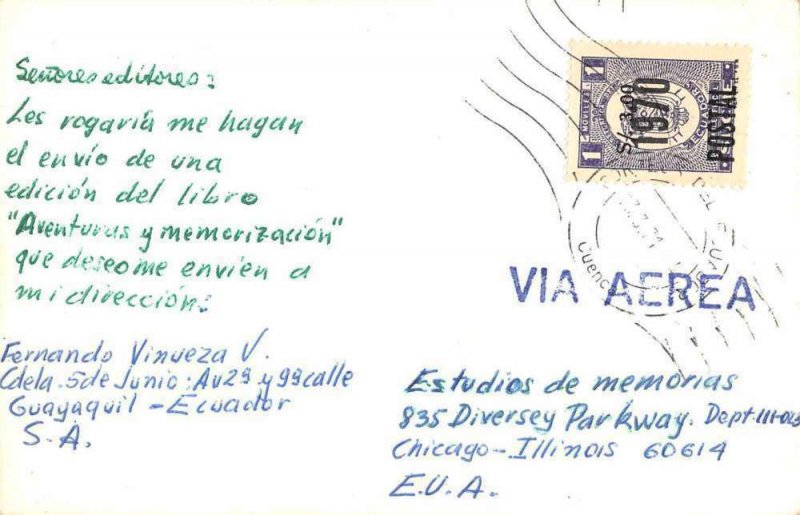 Señores editores:
Les rogaría me hagan
el envío de una
edición del libro
"Aventuras y memorización"
que deseo me envíen a
mi dirección:
Fernando Vinueza V.
Cdela. 5 de Junio: Av 29 y 99 calle
Guayaquil - Ecuador
S. A.
1 MOVILES 1
S/. 3,00
1970
ECUADOR
POSTAL
DEL ECUADOR
Cuenc
VIA AEREA
Estudios de memorias
835 Diversey Parkway. Dept.
Chicago - Illinois 60614
E.U.A.